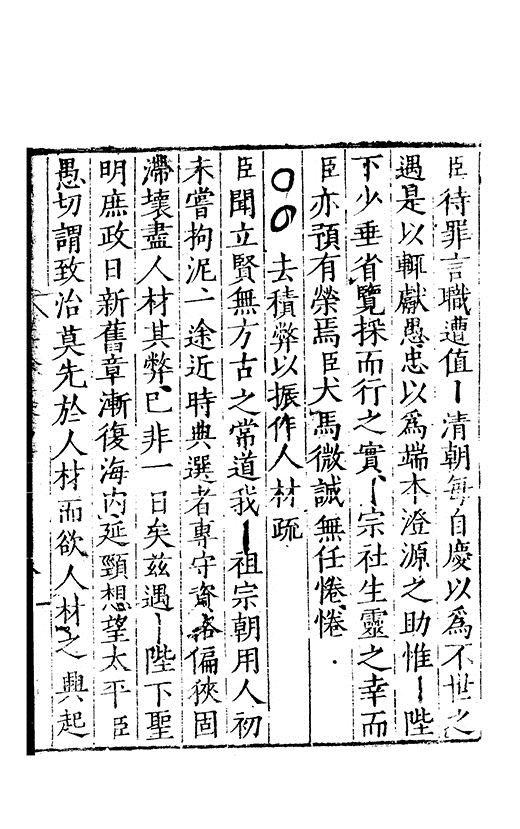 臣待罪言職遭值清朝每自慶以爲不世之
遇是以輒獻愚忠以爲端本澄源之助惟陛
下少垂省覽採而行之實宗社生靈之幸而
臣亦預有榮焉臣犬馬微誠無任惓惓
去積弊以振作人材疏
臣聞立賢無方古之常道我祖宗朝用人初
未嘗拘泥一途近時典選者專守資格偏狹固
滯壞盡人材其弊已非一日矣玆遇陛下聖
明庶政日新舊章漸復海内延頸想望太平臣
愚切謂致治莫先於人材而欲人材之興起